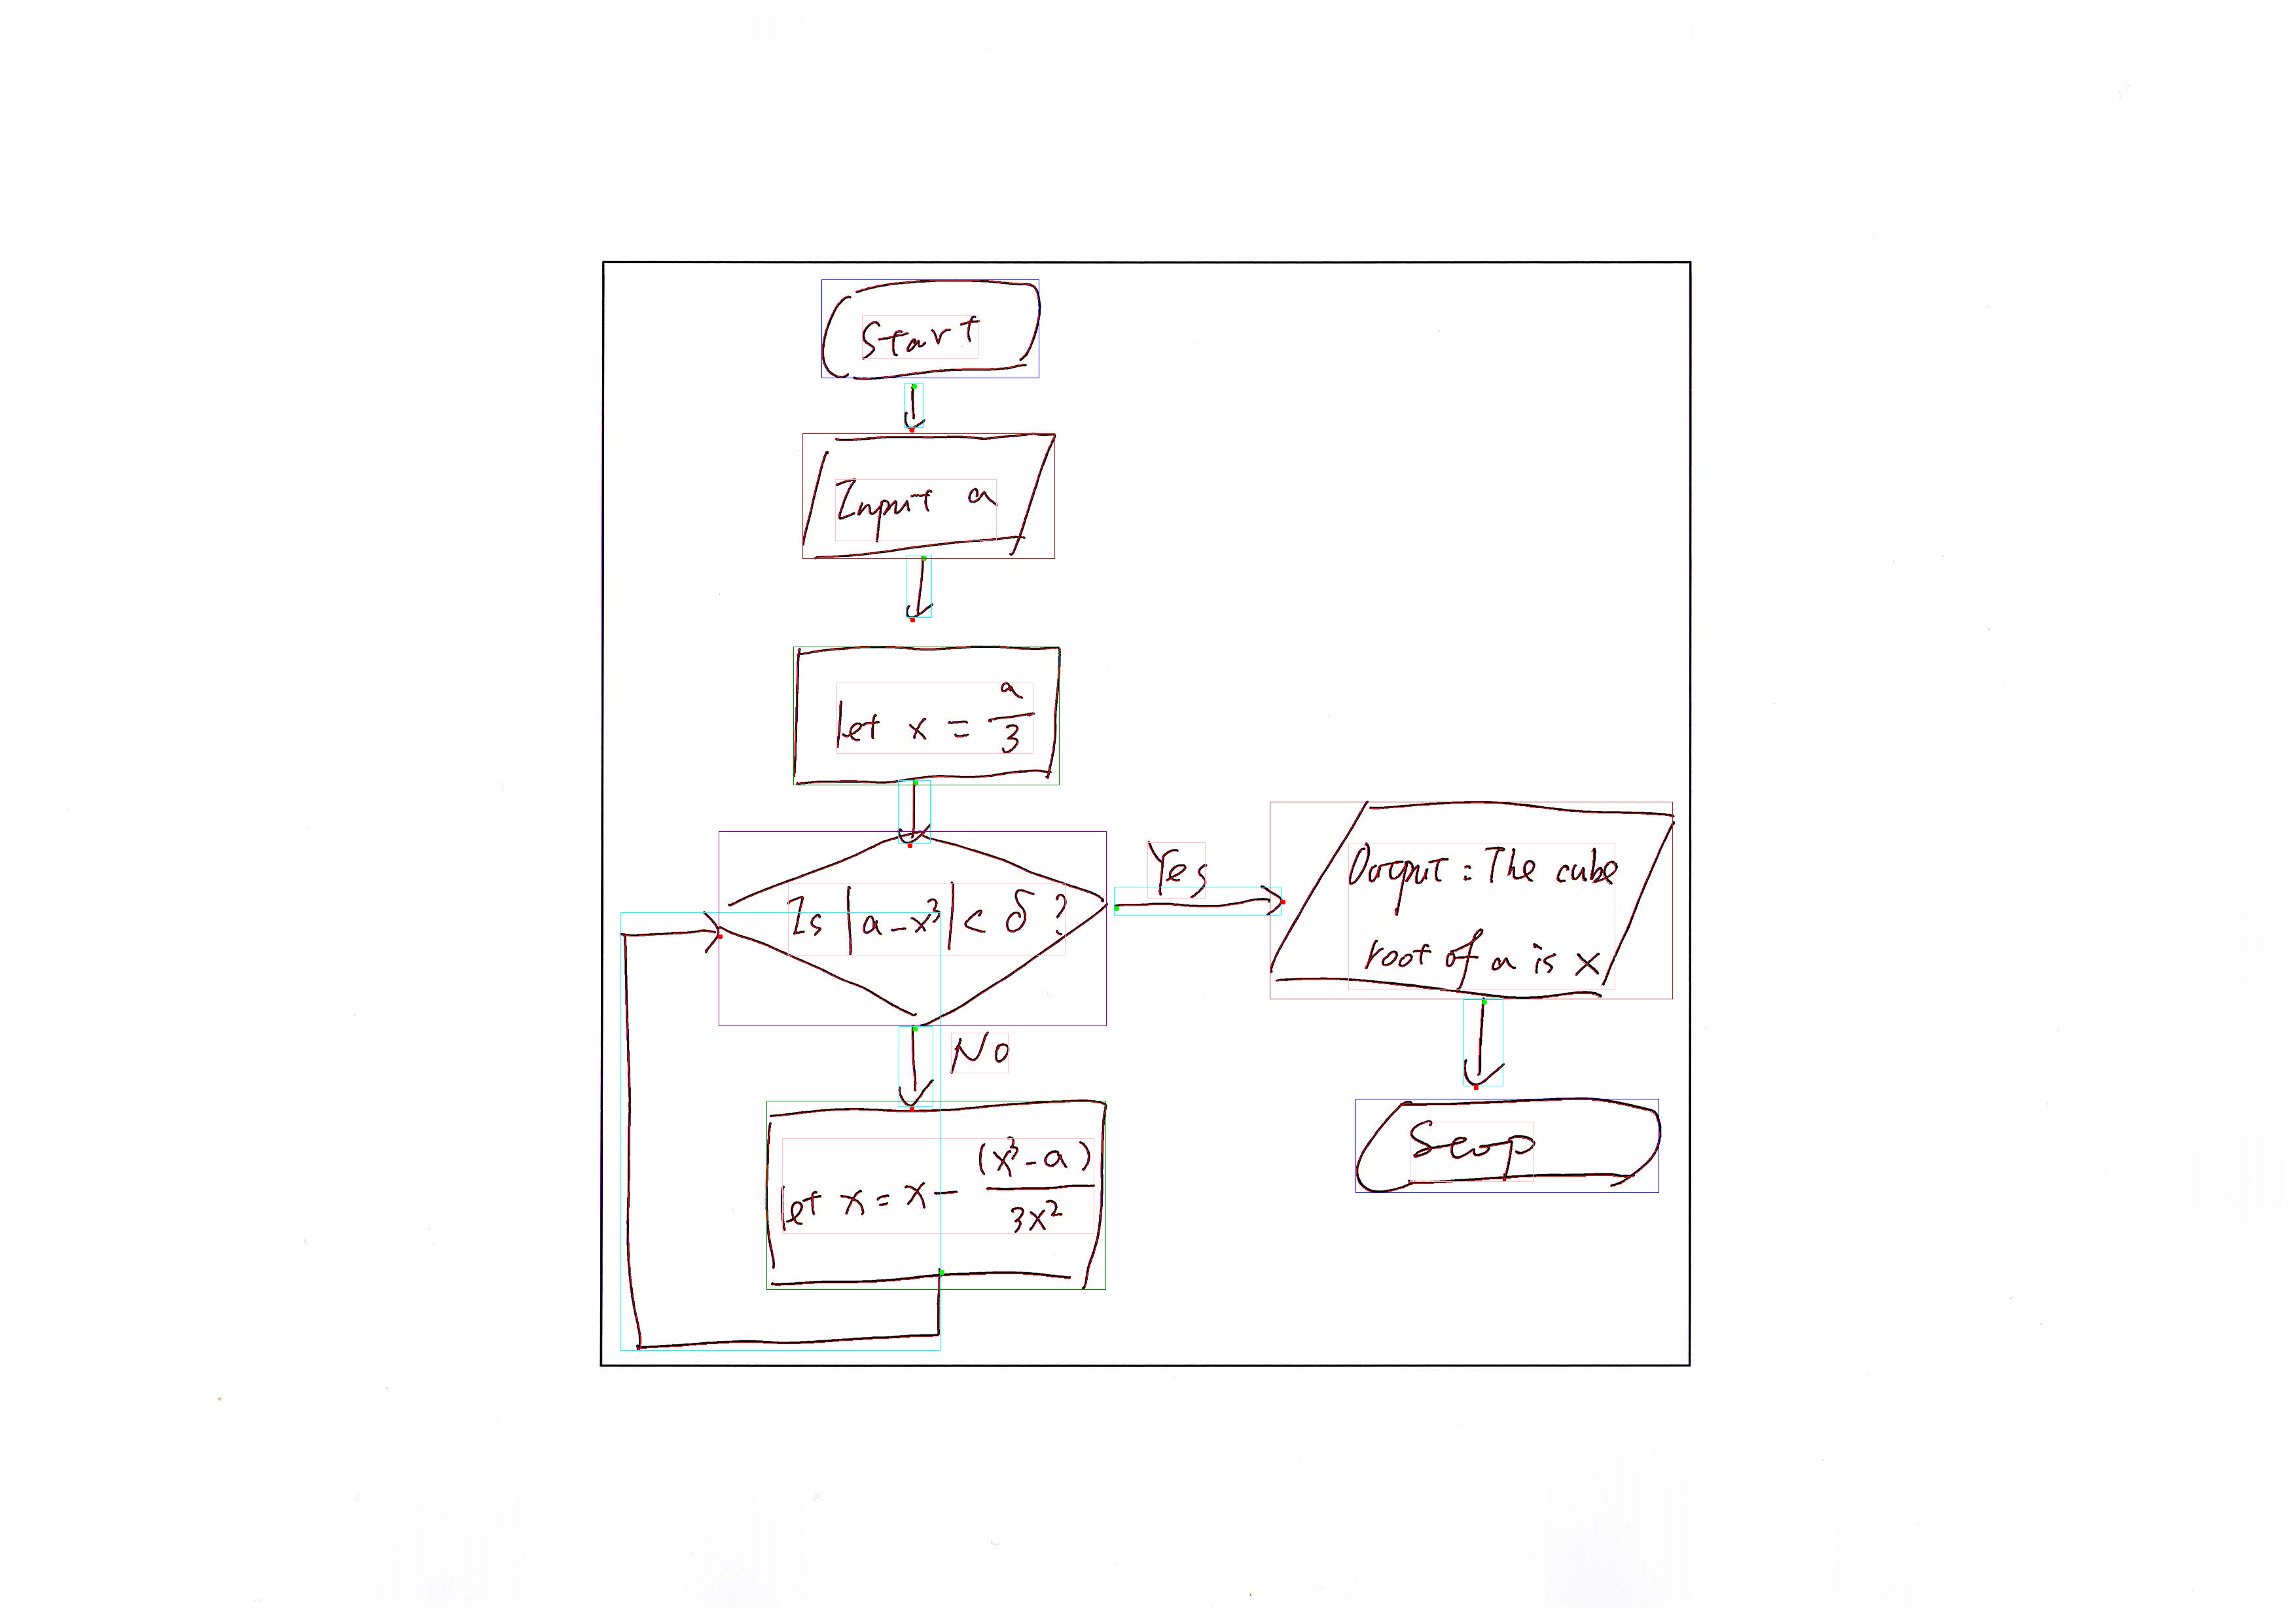 Start
Input a
let x = a/3
Is |a - x³| < δ ?
Yes
Output : The cube
root of a is x
No
let x = x - (x³ - a)/3x²
Stop